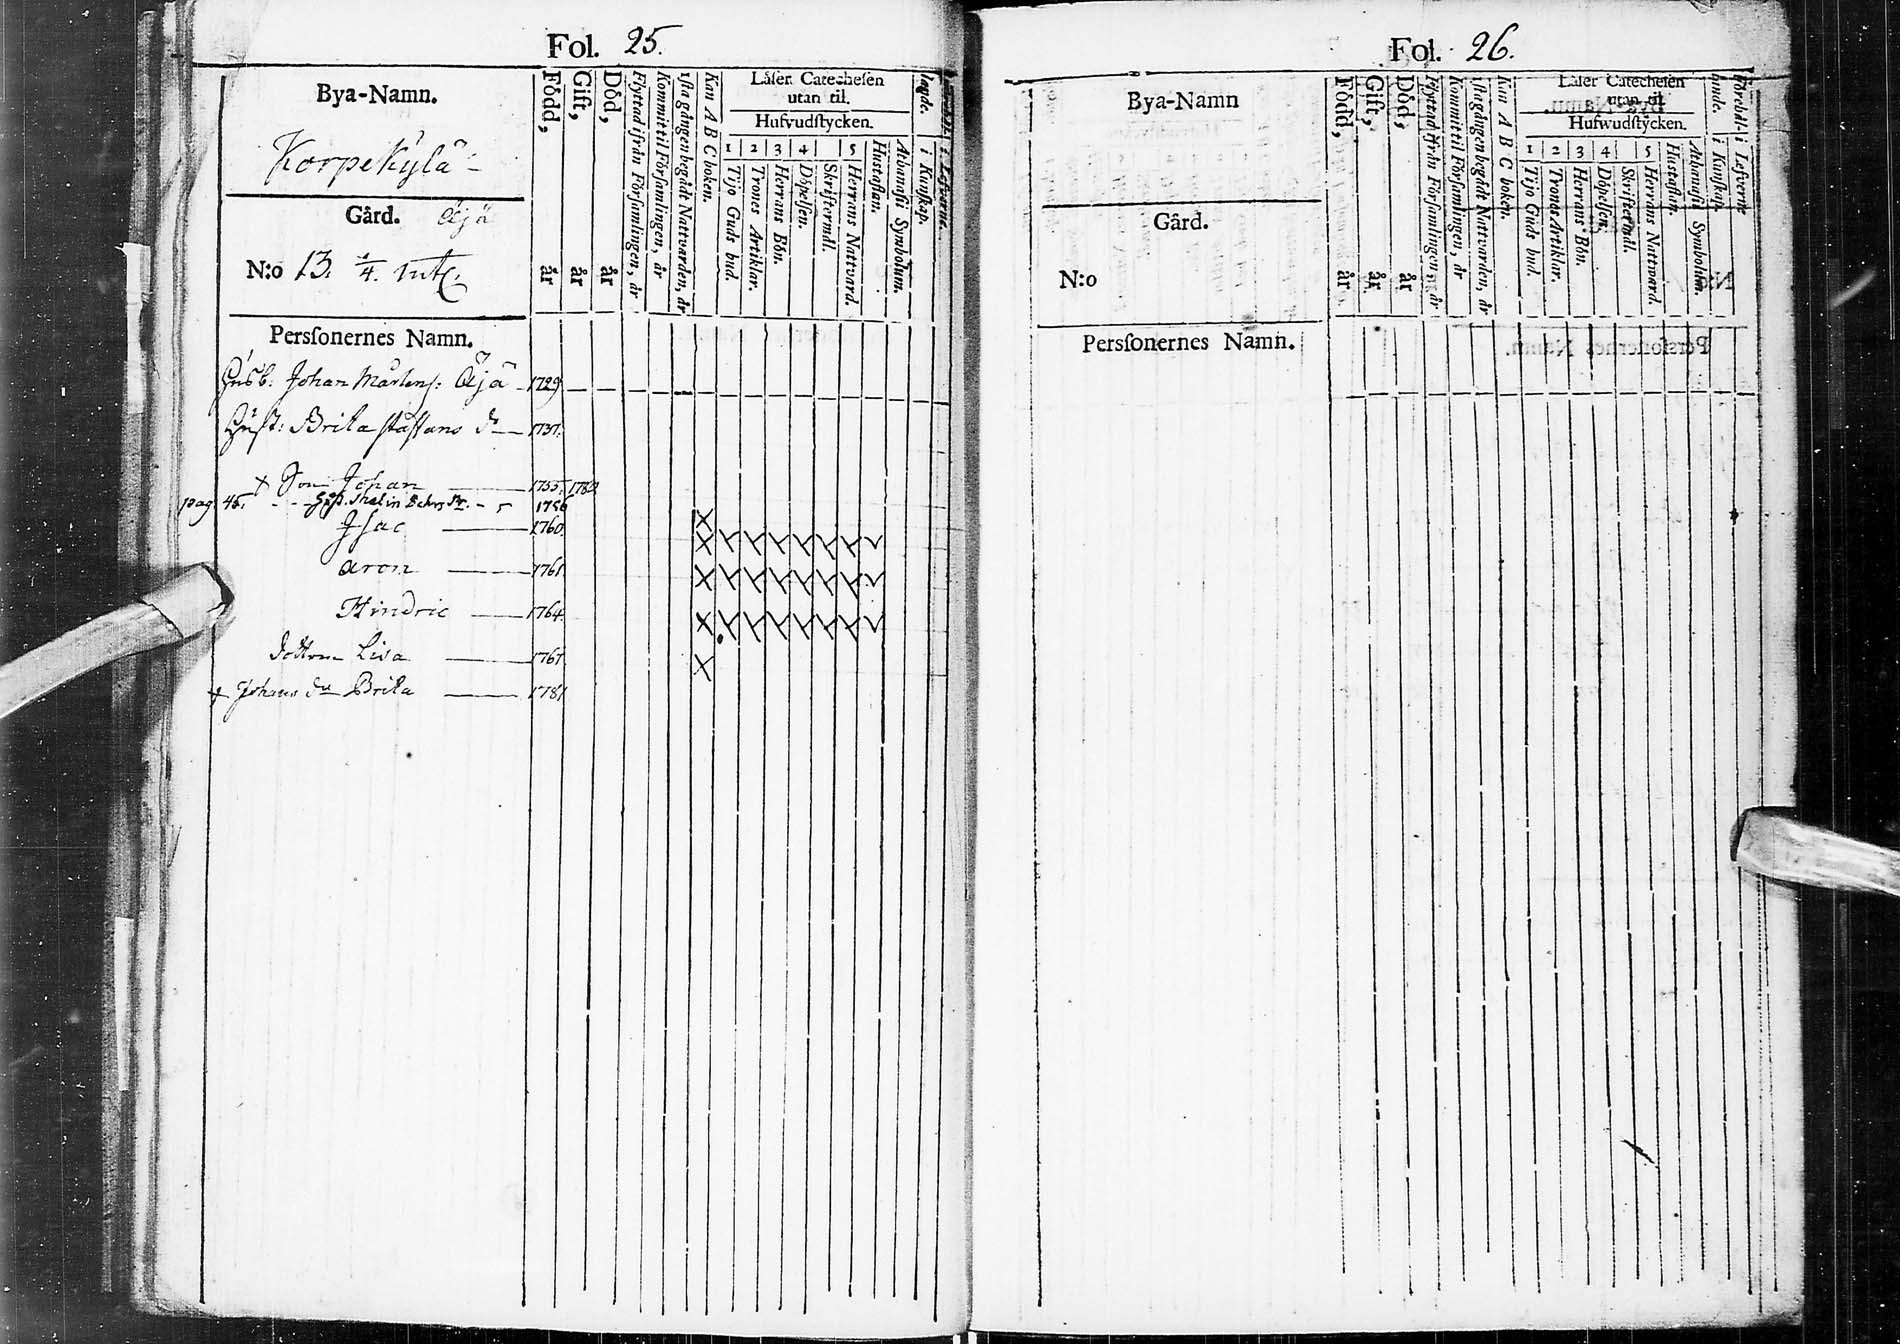 Fol. 25.
Bya-Namn.
Korpekylä
Gård. Äijä
N:o 13. 1/4. mtl.
Född, år
Gift, år
Död, år
Flyttad ifrån Församlingen, år
Kommit til Församlingen, år
1sta gången begådt Nattvarden, år
Kan A B C boken.
Läser Catechesen
utan til.
Hufvudstycken.
1 2 3 4 5
Tijo Guds bud.
Trones Artiklar.
Herrans Bön.
Döpelsen.
Skriftermål.
Herrans Nattvard.
Hustaflan.
Athanasii Symbolum.
i Kunskap.
i Lefverne.
Personernes Namn.
Husb: Johan Mårtens: Äijä 1729
Hust: Brita Staffans dr 1731.
+ Son Johan 1755. 1780
pag. 45. 1756
Isac 1760.
Aron 1761.
Hindric 1764.
dottren Lisa 1767.
+ Johans dr Brita 1781
Fol. 26.
Bya-Namn
Gård.
N:o
Född, år
Gift, år
Död, år
Flyttad ifrån Församlingen, år
Kommit til Församlingen, år
1sta gången begådt Nattvarden, år
Kan A B C boken.
Läser Catechesen
utan til.
Hufwudstycken.
1 2 3 4 5
Tijo Guds bud.
Trones Artiklar.
Herrans Bön.
Döpelsen.
Skriftermål.
Herrans Nattward.
Hustaflan.
Athanasii Symbolum.
i Kunskap.
i Lefverne
Personernes Namn.